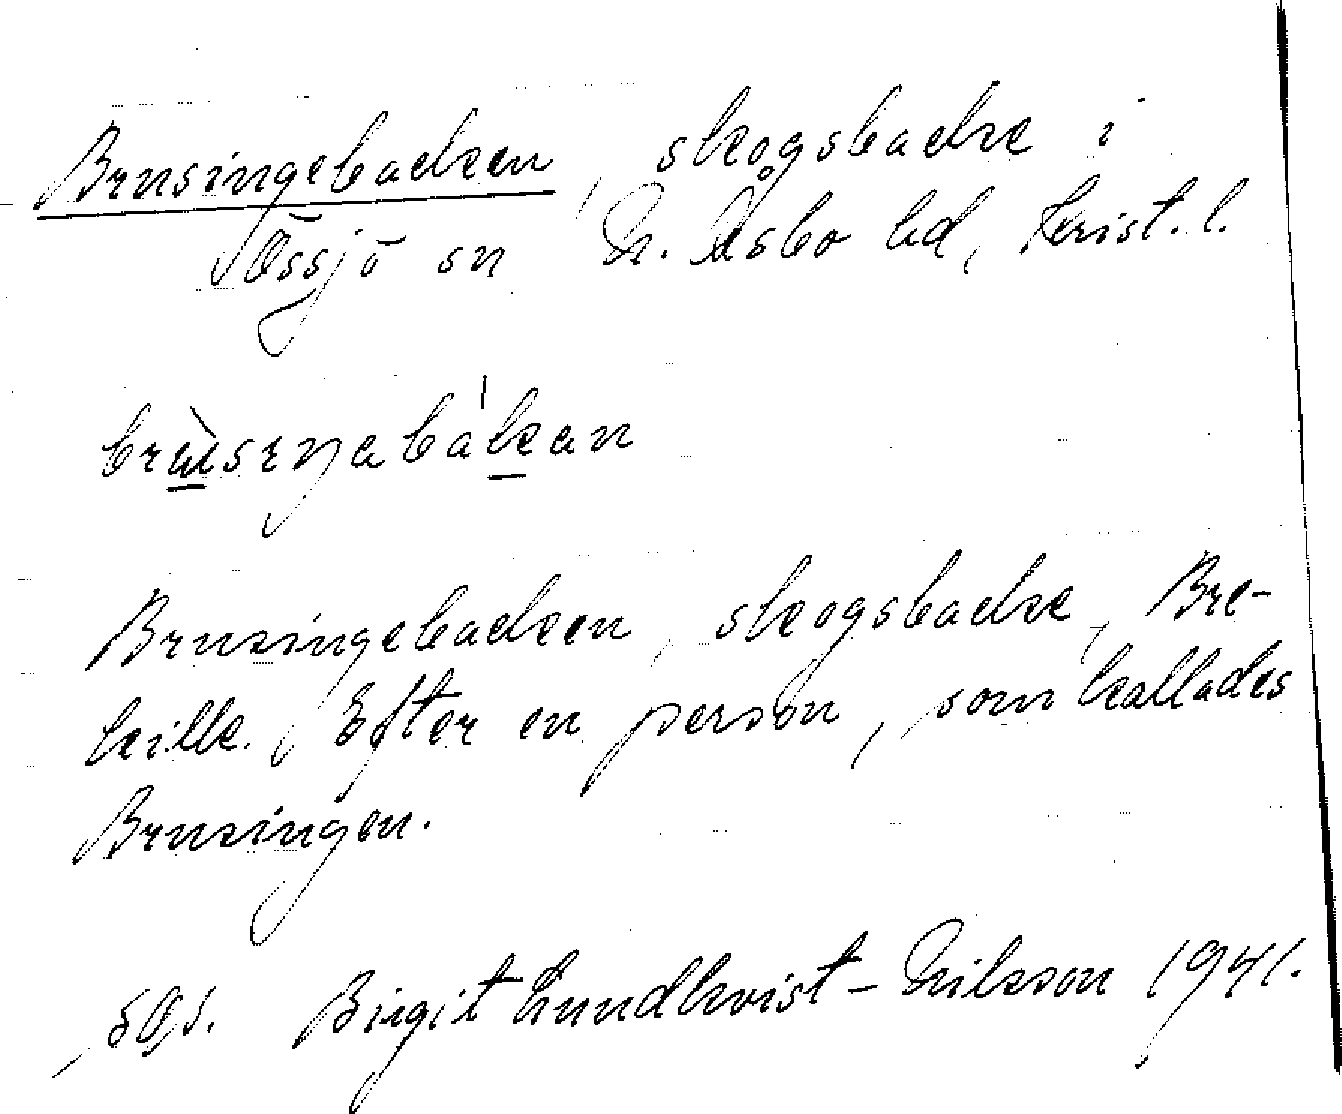 Brusingebacken, skogsbacke i
Össjö sn N. Åsbo hd, Krist. l.
Brusingebacken, skogsbacke, Bre-
kille. Efter en person, som kallades
Brusingen.
Birgit Lundkvist-Nilsson 1941.